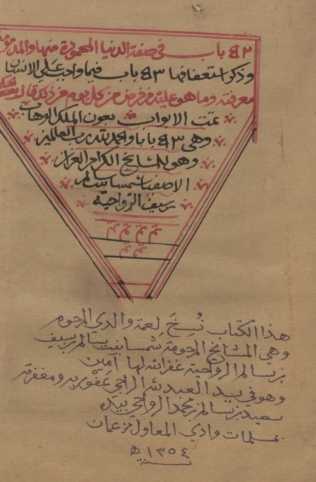 ٨٢ باب في صفة الدنيا المحمودة منها والمذمومة
وذكر استعفافها ٨٣ باب فيما واجب على الانسان
معرفته وما هو عليه فرض
تمت الابواب بعون الملك الوهاب
وهي ٨٣ بابا والحمد لله رب العالمين
وهو للمشايخ الكرام العزاز
سالم
بن سيف الرواحية
تم تم تم تم
تم تم
هذا الكتاب نسخ لعمة والدي المرحوم
وهي المشايخ المرحومة شمسا بنت سالم بن سيف
بن سالم الرواحية غفر الله لها آمين
وهو في يد العبد لله الراجي عفو ربه ومغفرته
سعيد بن سالم بن محمد الرواحي بيده
بمسلمات وادي المعاول من عمان
سنة ١٣٥٤ ه